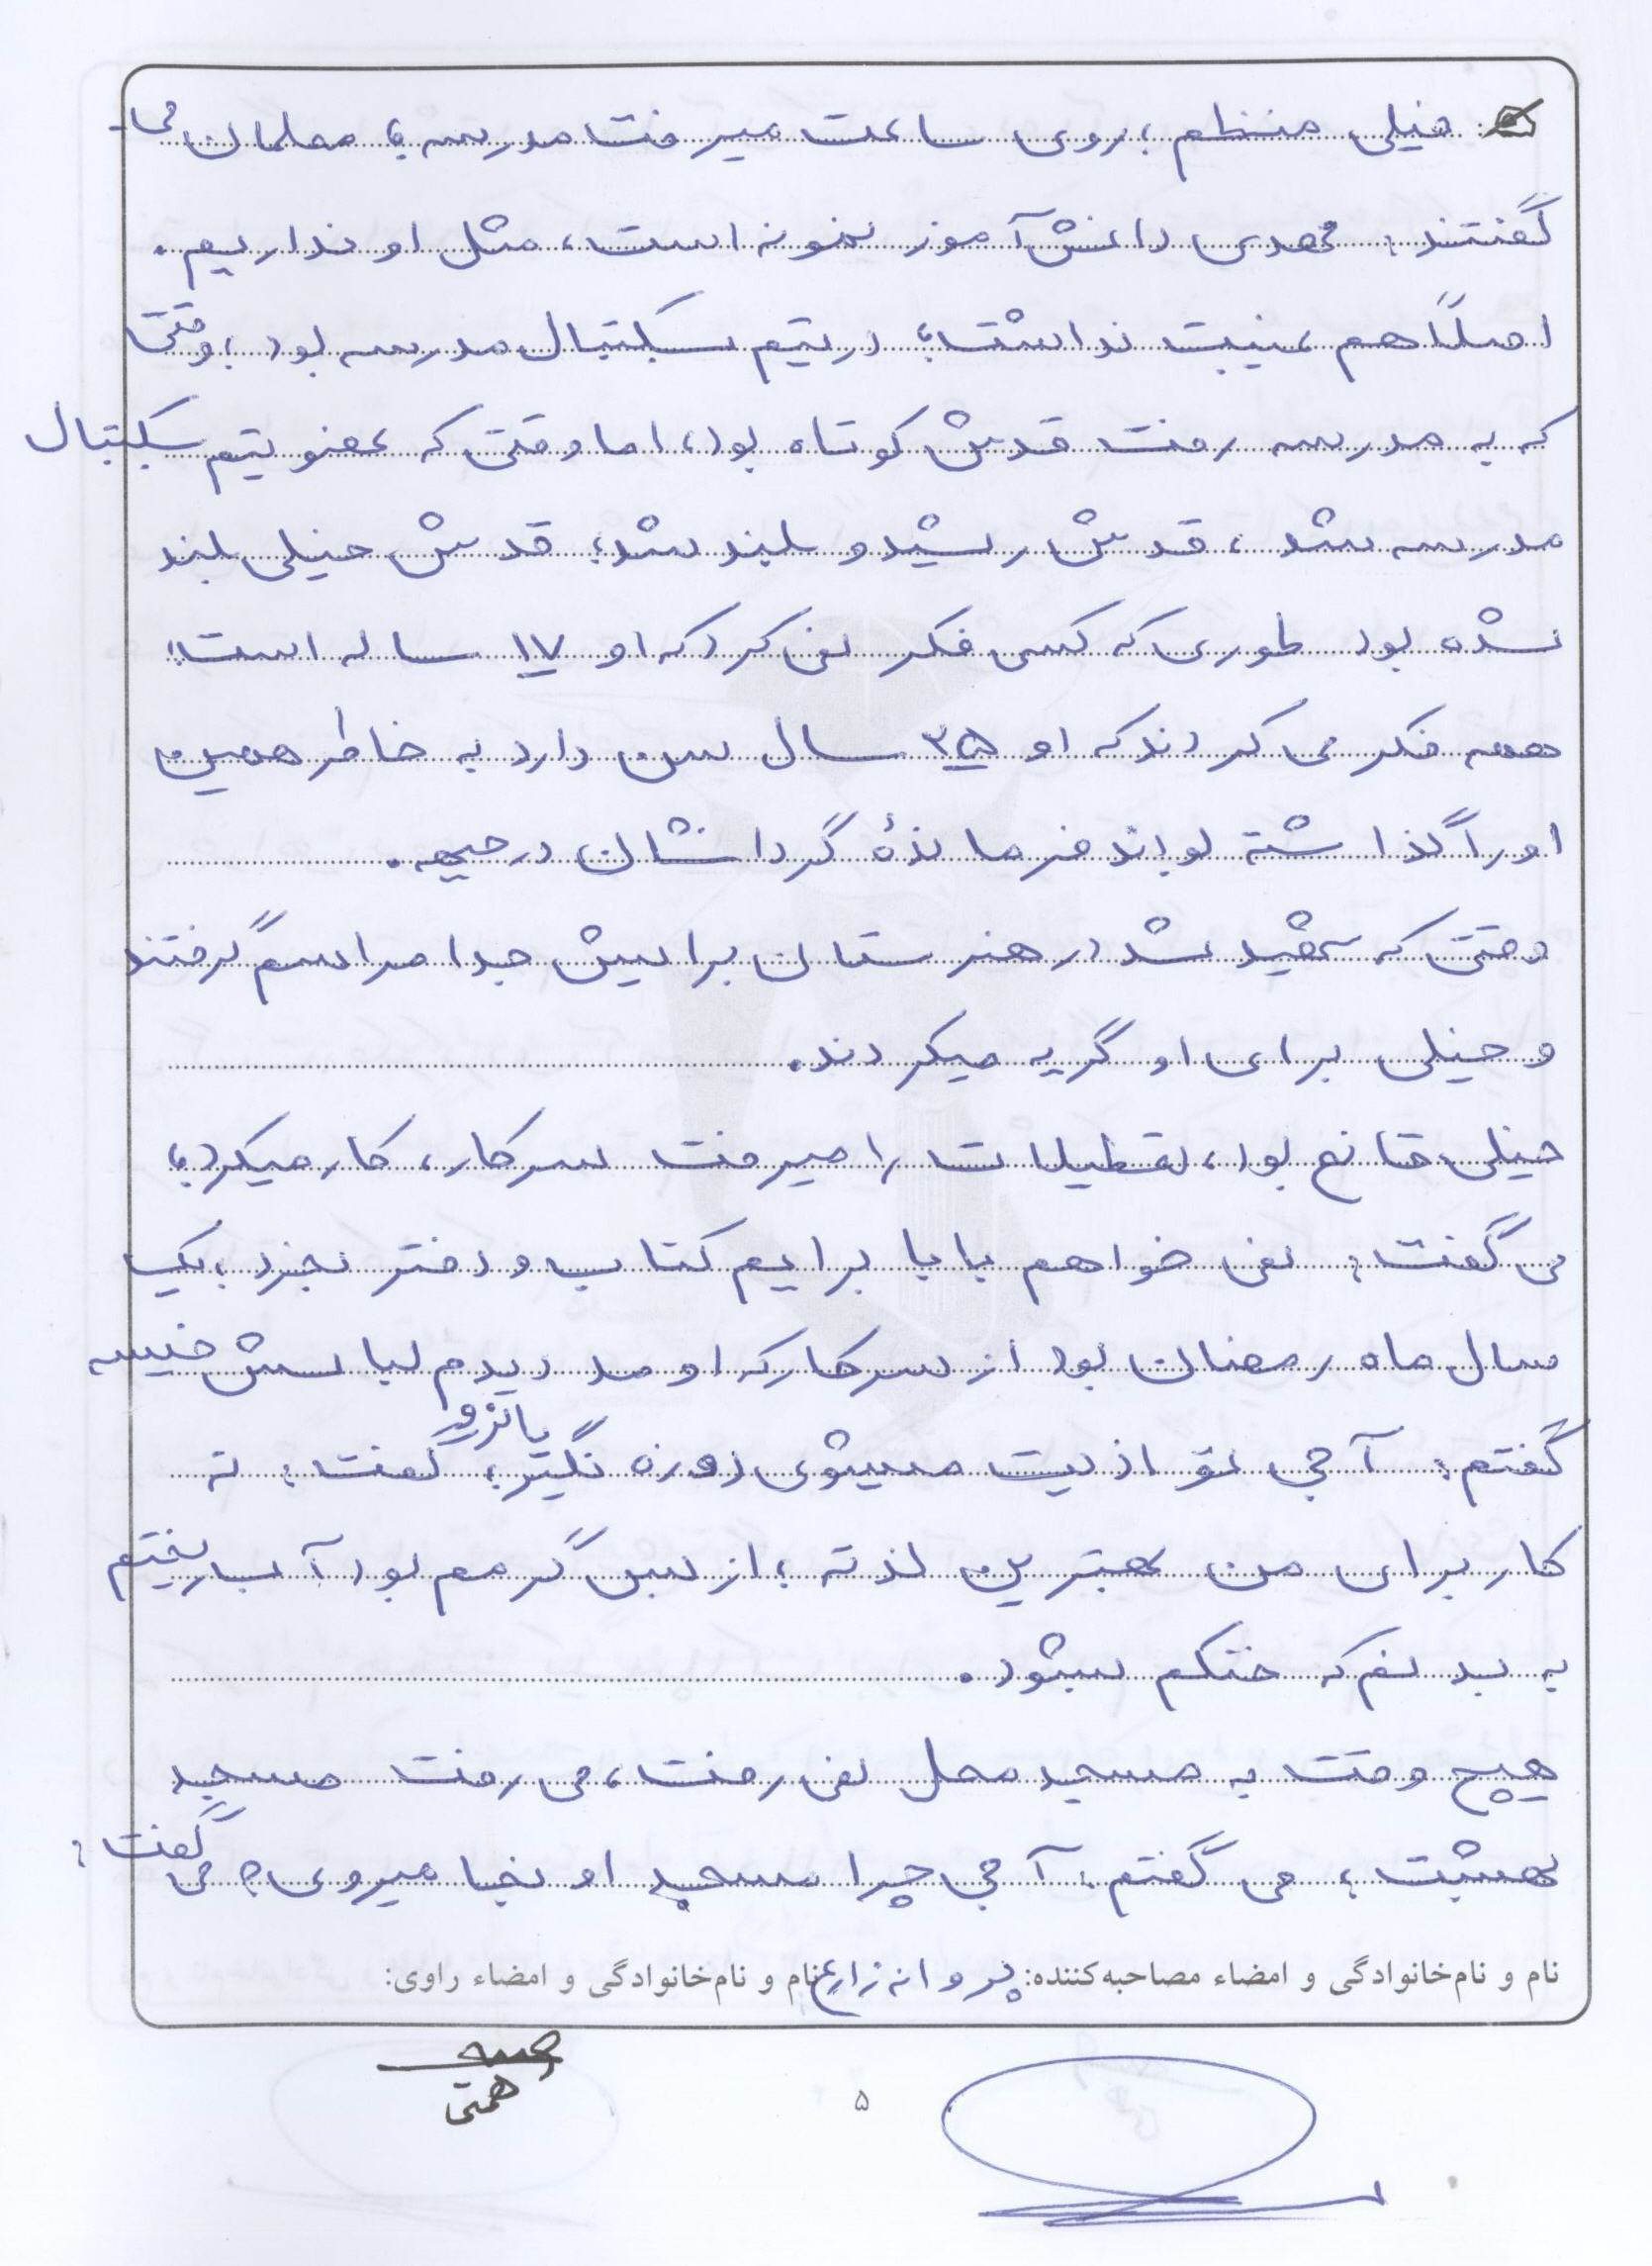 خیلی منظم، روی ساعت میرفت مدرسه؛ معلمان می-
گفتند: مهدی دانش‌آموز نمونه است، مثل او نداریم.
اصلاً هم غیبت نداشت؛ در تیم بسکتبال مدرسه بود، وقتی
که به مدرسه رفت قدش کوتاه بود، اما وقتی که عضو تیم بسکتبال
مدرسه شد، قدش رشید و بلند شد؛ قدش خیلی بلند
شده بود طوری که کسی فکر نمی‌کرد که او ۱۷ ساله است؛
همه فکر می‌کردند که او ۳۵ سال سن دارد به خاطر همین
او را گذاشته بودند فرماندهٔ گردانشان در جبهه.
وقتی که شهید شد در هنرستان برایش جدا مراسم گرفتند
و خیلی برای او گریه میکردند.
خیلی قانع بود، تعطیلات را میرفت سرکار، کار میکرد؛
می‌گفت: نمی‌خواهم بابا برایم کتاب و دفتر بخرد، یک
سال ماه رمضان بود از سرکار که اومد دیدم لباسش خیسه
گفتم: آجی تو اذیت میشوی روزه نگیر؛ یا نرو گفت: نه
کار برای من بهترین لذته؛ از بس گرمم بود آب ریختم
به بدنم که خنکم بشود.
هیچ وقت به مسجد محل نمی‌رفت، می‌رفت مسجد
بهشت؛ می‌گفتم: آجی چرا مسجد اونجا میروی؟ می‌گفت:
نام و نام‌خانوادگی و امضاء مصاحبه‌کننده: پروانه زارع نام و نام‌خانوادگی و امضاء راوی:
همتی
۵